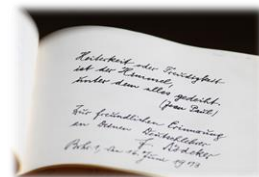 Heiterkeit oder Freudigkeit
ist der Himmel,
unter dem alles gedeiht.
(Jean Paul)
Zur freundlichen Erinnerung
an Deinen
F. Rädeker
den 12. Juni 1973